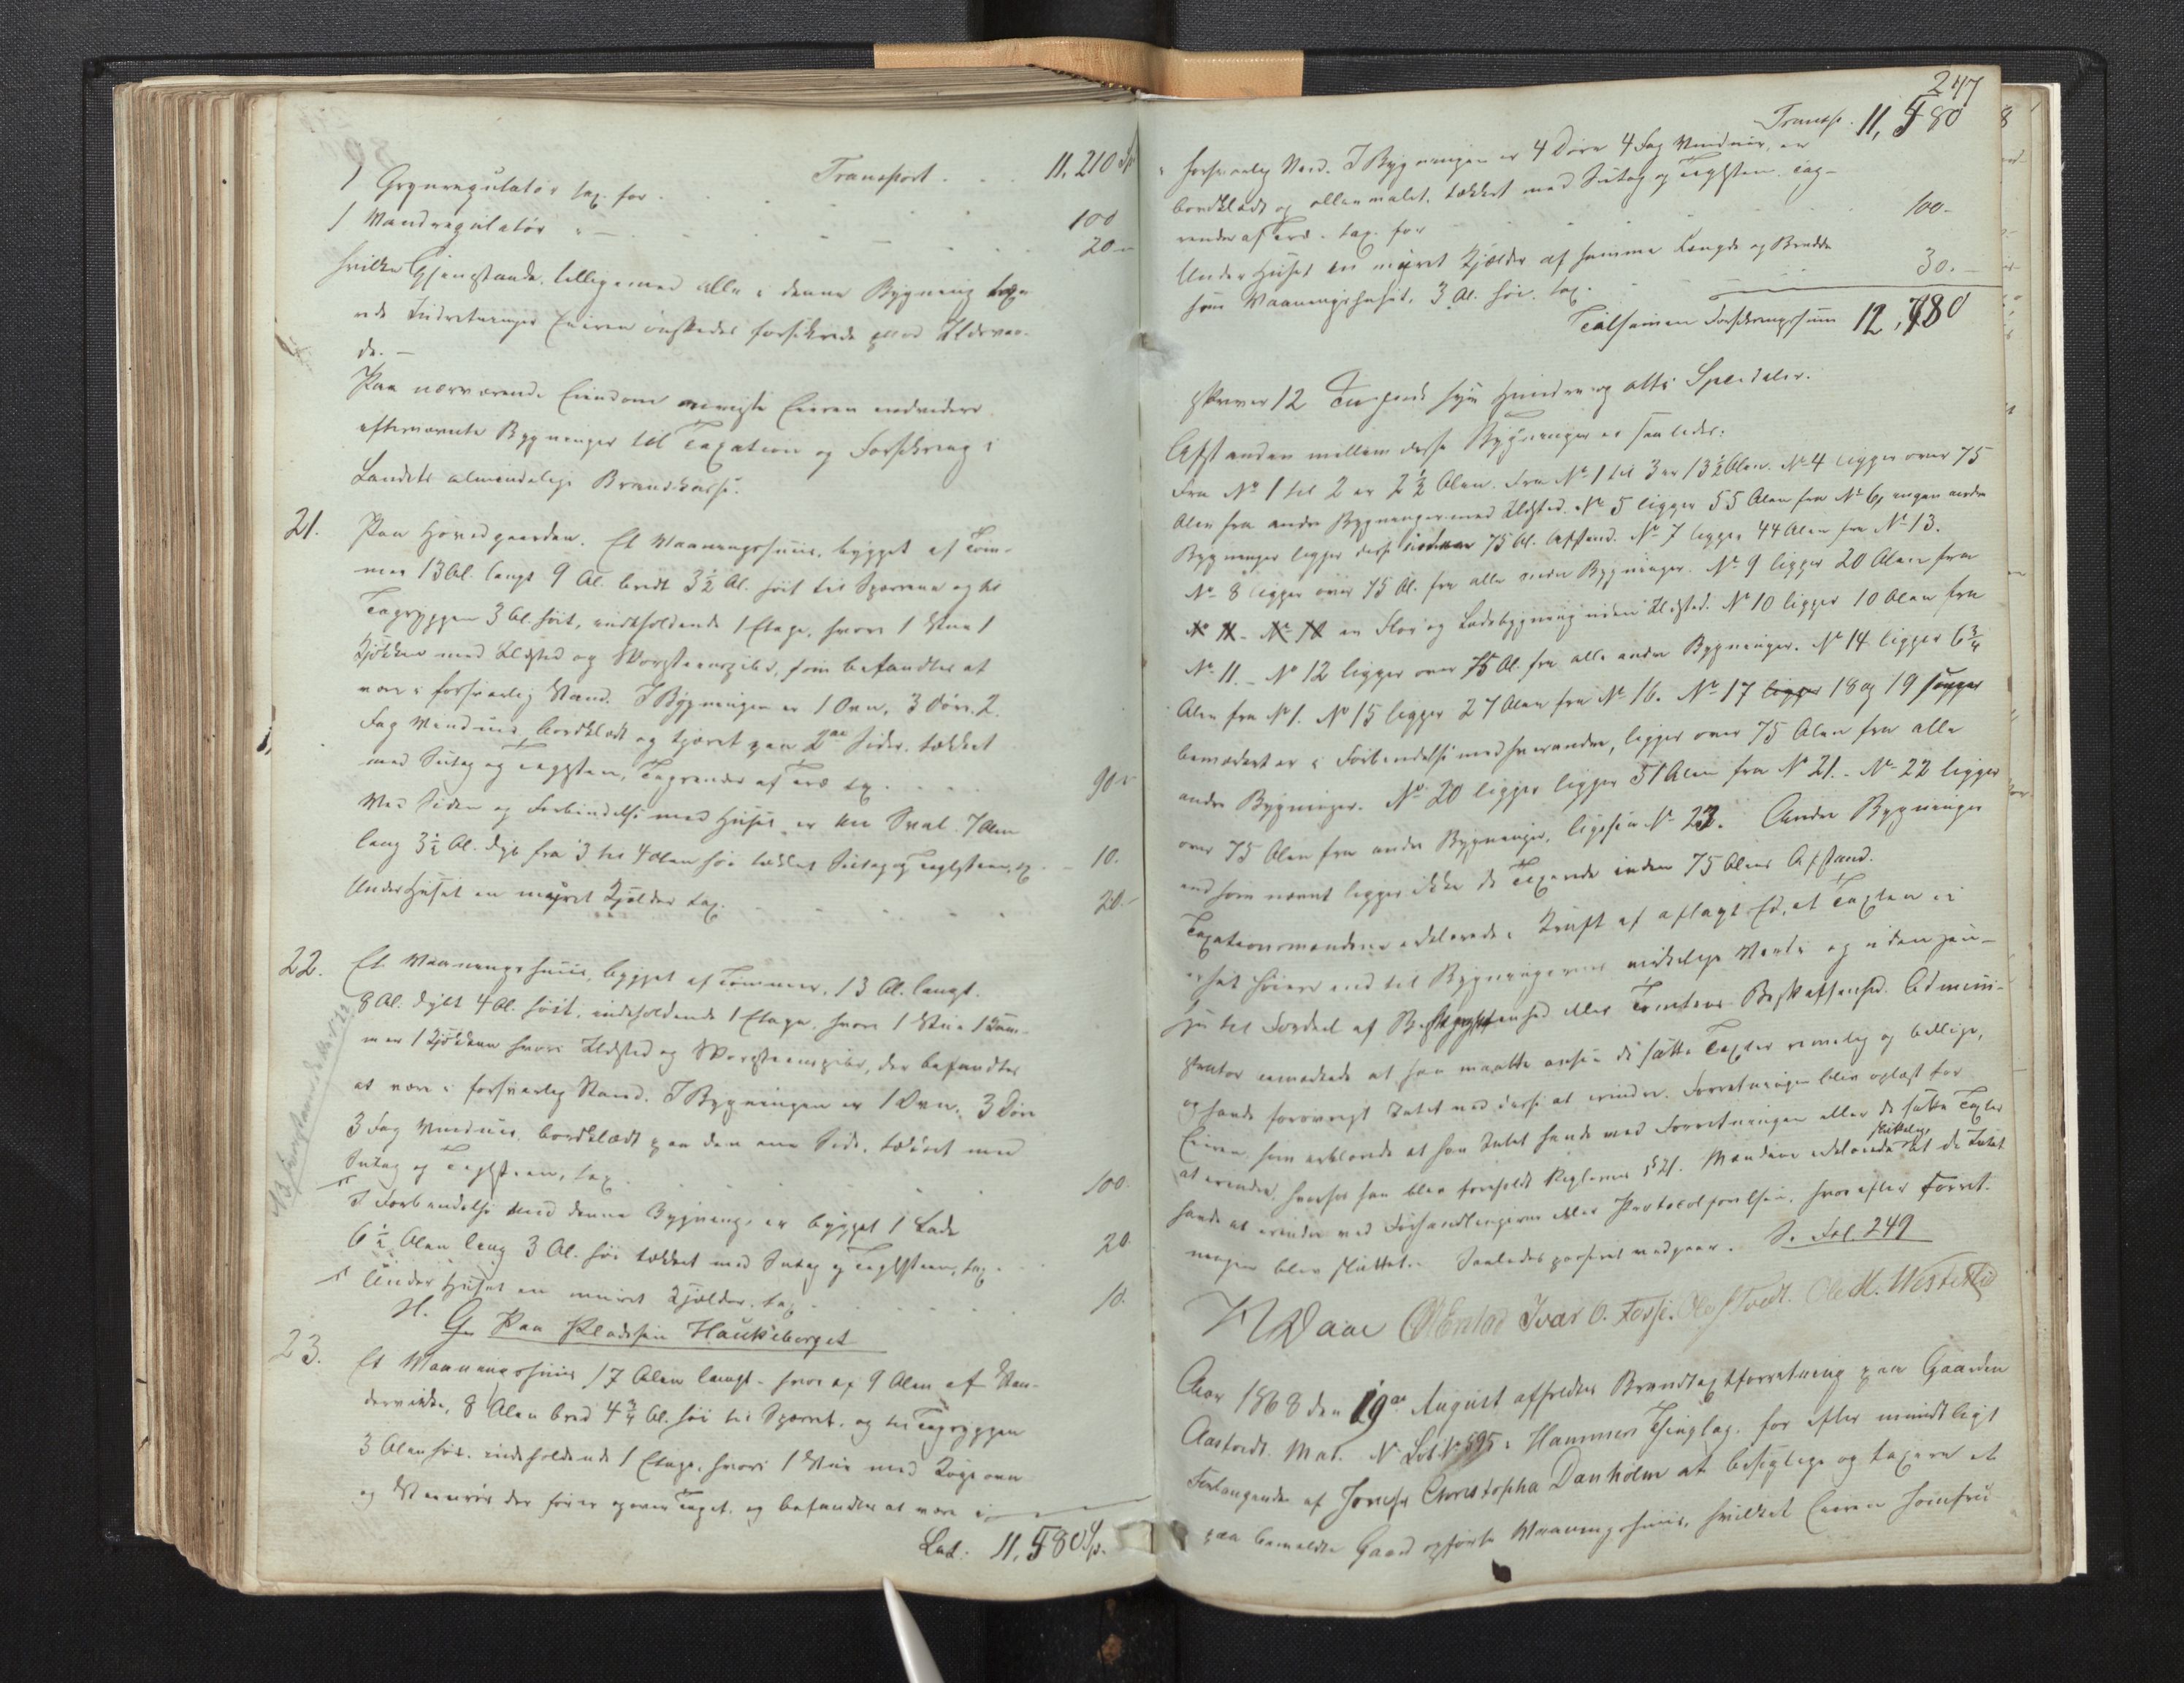 Transport . . . 11,210 Sp
1 Grynregulatør tax. for . . . 100
1 Vandregulatør " — . . . 20 —
hvilke Gjenstande, tilligemed alle i denne Bygning taxe-
rede Indretninger Eieren ønskedes forsikrede mod Ildsvaa-
de. —
Paa nærværende Eiendom anviste Eieren endvidere
efternævnte Bygninger til Taxation og Forsikring i
Landets almindelige Brandkasse.
21. Paa Hovedgaarden. Et Vaaningshuus, bygget af Tøm-
mer 13 Al. langt 9 Al. bredt 3½ Al. høit til Sperrene og til
Tagryggen 3 Al. høit, indeholdende 1 Etage, hvori 1 Stue 1
Kjøkken med Ildsted og Skorsteenspibe, som befandtes at
være i forsvarlig Stand. I Bygningen er 1 Ovn, 3 Døre. 2.
Fag Vinduer, bordklædt og tjæret paa 2de Sider. tækket
med Sutag og Taglsteen, Tagrender af Træ tx. . . . 90 –
Ved Siden og Forbindelse med Huset er en Sval. 7 Alen
lang 3½ Al. dyb fra 3 til 4 Alen høi tækket Sutag og Taglsteen, tx. – 10.
Under Huset en muret Kjelder tax. . . . 20. –
22. Et Vaaningshuus, bygget af Tømmer. 13 Al. langt.
8 Al. dybt 4 Al. høit, indeholdende 1 Etage. hvori 1 Stue 1 Kam-
mer 1 Kjøkken hvori Ildsted og Skorsteenspibe, der befandtes
at være i forsvarlig Stand. I Bygningen er 1 Ovn. 3 Døre
3 Fag Vinduer, bordklædt paa den ene Side, tækket med
Sutag og Taglsteen, tax . . . 100.
I Forbindelse med denne Bygning er bygget 1 Lade
6½ Alen lang 3 Al. høi tækket med Sutag og Taglsteen, tax. . . 20.
Under Huset en muret Kjælder. tax . . . 10.
H. Paa Pladsen Haukeberget
23. Et Vaaningshuus 17 Alen langt – hvoraf 9 Alen af Stan-
derværk, 8 Alen bred 4¾ Al. høi til Sperret. og til Tagryggen
3 Alen høi. indeholdende 1 Etage, hvori 1 Stue med Kogeovn
og Steenrør der fører op over Taget. og befandtes at være i
Lat. 11,580 Sp.
247
Transp. 11,580
forsvarlig Stand. I Bygningen er 4 Døre 4 Fag Vinduer, er
bordklædt og oliemalet, tækket med Sutag og Taglsteen. Tag-
render af Træ. tax. for . . . 100 –
Under Huset en muret Kjælder af samme Længde og Bredde
som Vaaningshuset, 3 Al. høi. tax. . . 30. –
Tilsammen Forsikringssum 12,780
skriver 12 Tusinde syv Hundrede og otti Speciedaler.
Afstanden mellem disse Bygninger er saaledes:
Fra No 1 til 2 er 2½ Alen. Fra No 1 til 3 er 13½ Alen. No 4 ligger over 75
Alen fra andre Bygninger med Ildsted. No 5 ligger 55 Alen fra No 6, ingen andre
Bygninger ligger disse indenfor 75 Al. Afstand. No 7 ligger 44 Alen fra No 13.
No 8 ligger over 75 Al. fra alle andre Bygninger. No 9 ligger 20 Alen fra
No 11 – No 10 en Flor og Ladebygning uden Ildsted. No 10 ligger 10 Alen fra
No 11. – No 12 ligger over 75 Al. fra alle andre Bygninger. No 14 ligger 6¾
Alen fra No 1. No 15 ligger 27 Alen fra No 16. No 17 ligger 18 og 19
bemærket er i Forbindelse med hverandre, ligger over 75 Alen fra alle
andre Bygninger. No 20 ligger ligger 51 Alen fra No 21. – No 22 ligger
over 75 Alen fra andre Bygninger, ligesaa No 23. Andre Bygninger
end som nævnt ligger ikke de Taxerede inden 75 Alens Afstand.
Taxationsmændene erklærede i Kraft af aflagt Ed, at Taxten ei
er sat høiere end til Bygningernes virkelige Værdi og uden Hen-
syn til Fordeel af Beliggenhed eller Tomtens Beskaffenhed. Admini-
strator bemærkede at han maatte ansee de satte Taxter rimelig og billige,
og havde forøvrigt Intet ved disse at erindre. Forretningen blev oplæst for
Eieren, som erklærede at han Intet havde ved Forretningen eller de satte Taxter
at erindre, hvorhos han blev foreholdt Reglerne §21. Mændene erklærede at de Intet
havde at erindre ved Forhandlingerne eller Protocolførelsen, hvorefter Forret-
ningen blev sluttet. Saaledes passeret vedgaaer. S. Fol. 249
Daae Ivar O. Fosse. Ole M. Westerlid
Aar 1868 den 19de August afholdtes Brandtaxtforretning paa Gaarden
Aastvedt. Mat. No Løb No 595 i Hammers Thinglag, for efter mundtligt
Forlangende af Jomfru Christopha Danholm at besigtige og taxere et
paa bemeldte Gaard opførte Vaaningshuus, hvilket Eieren Jomfru